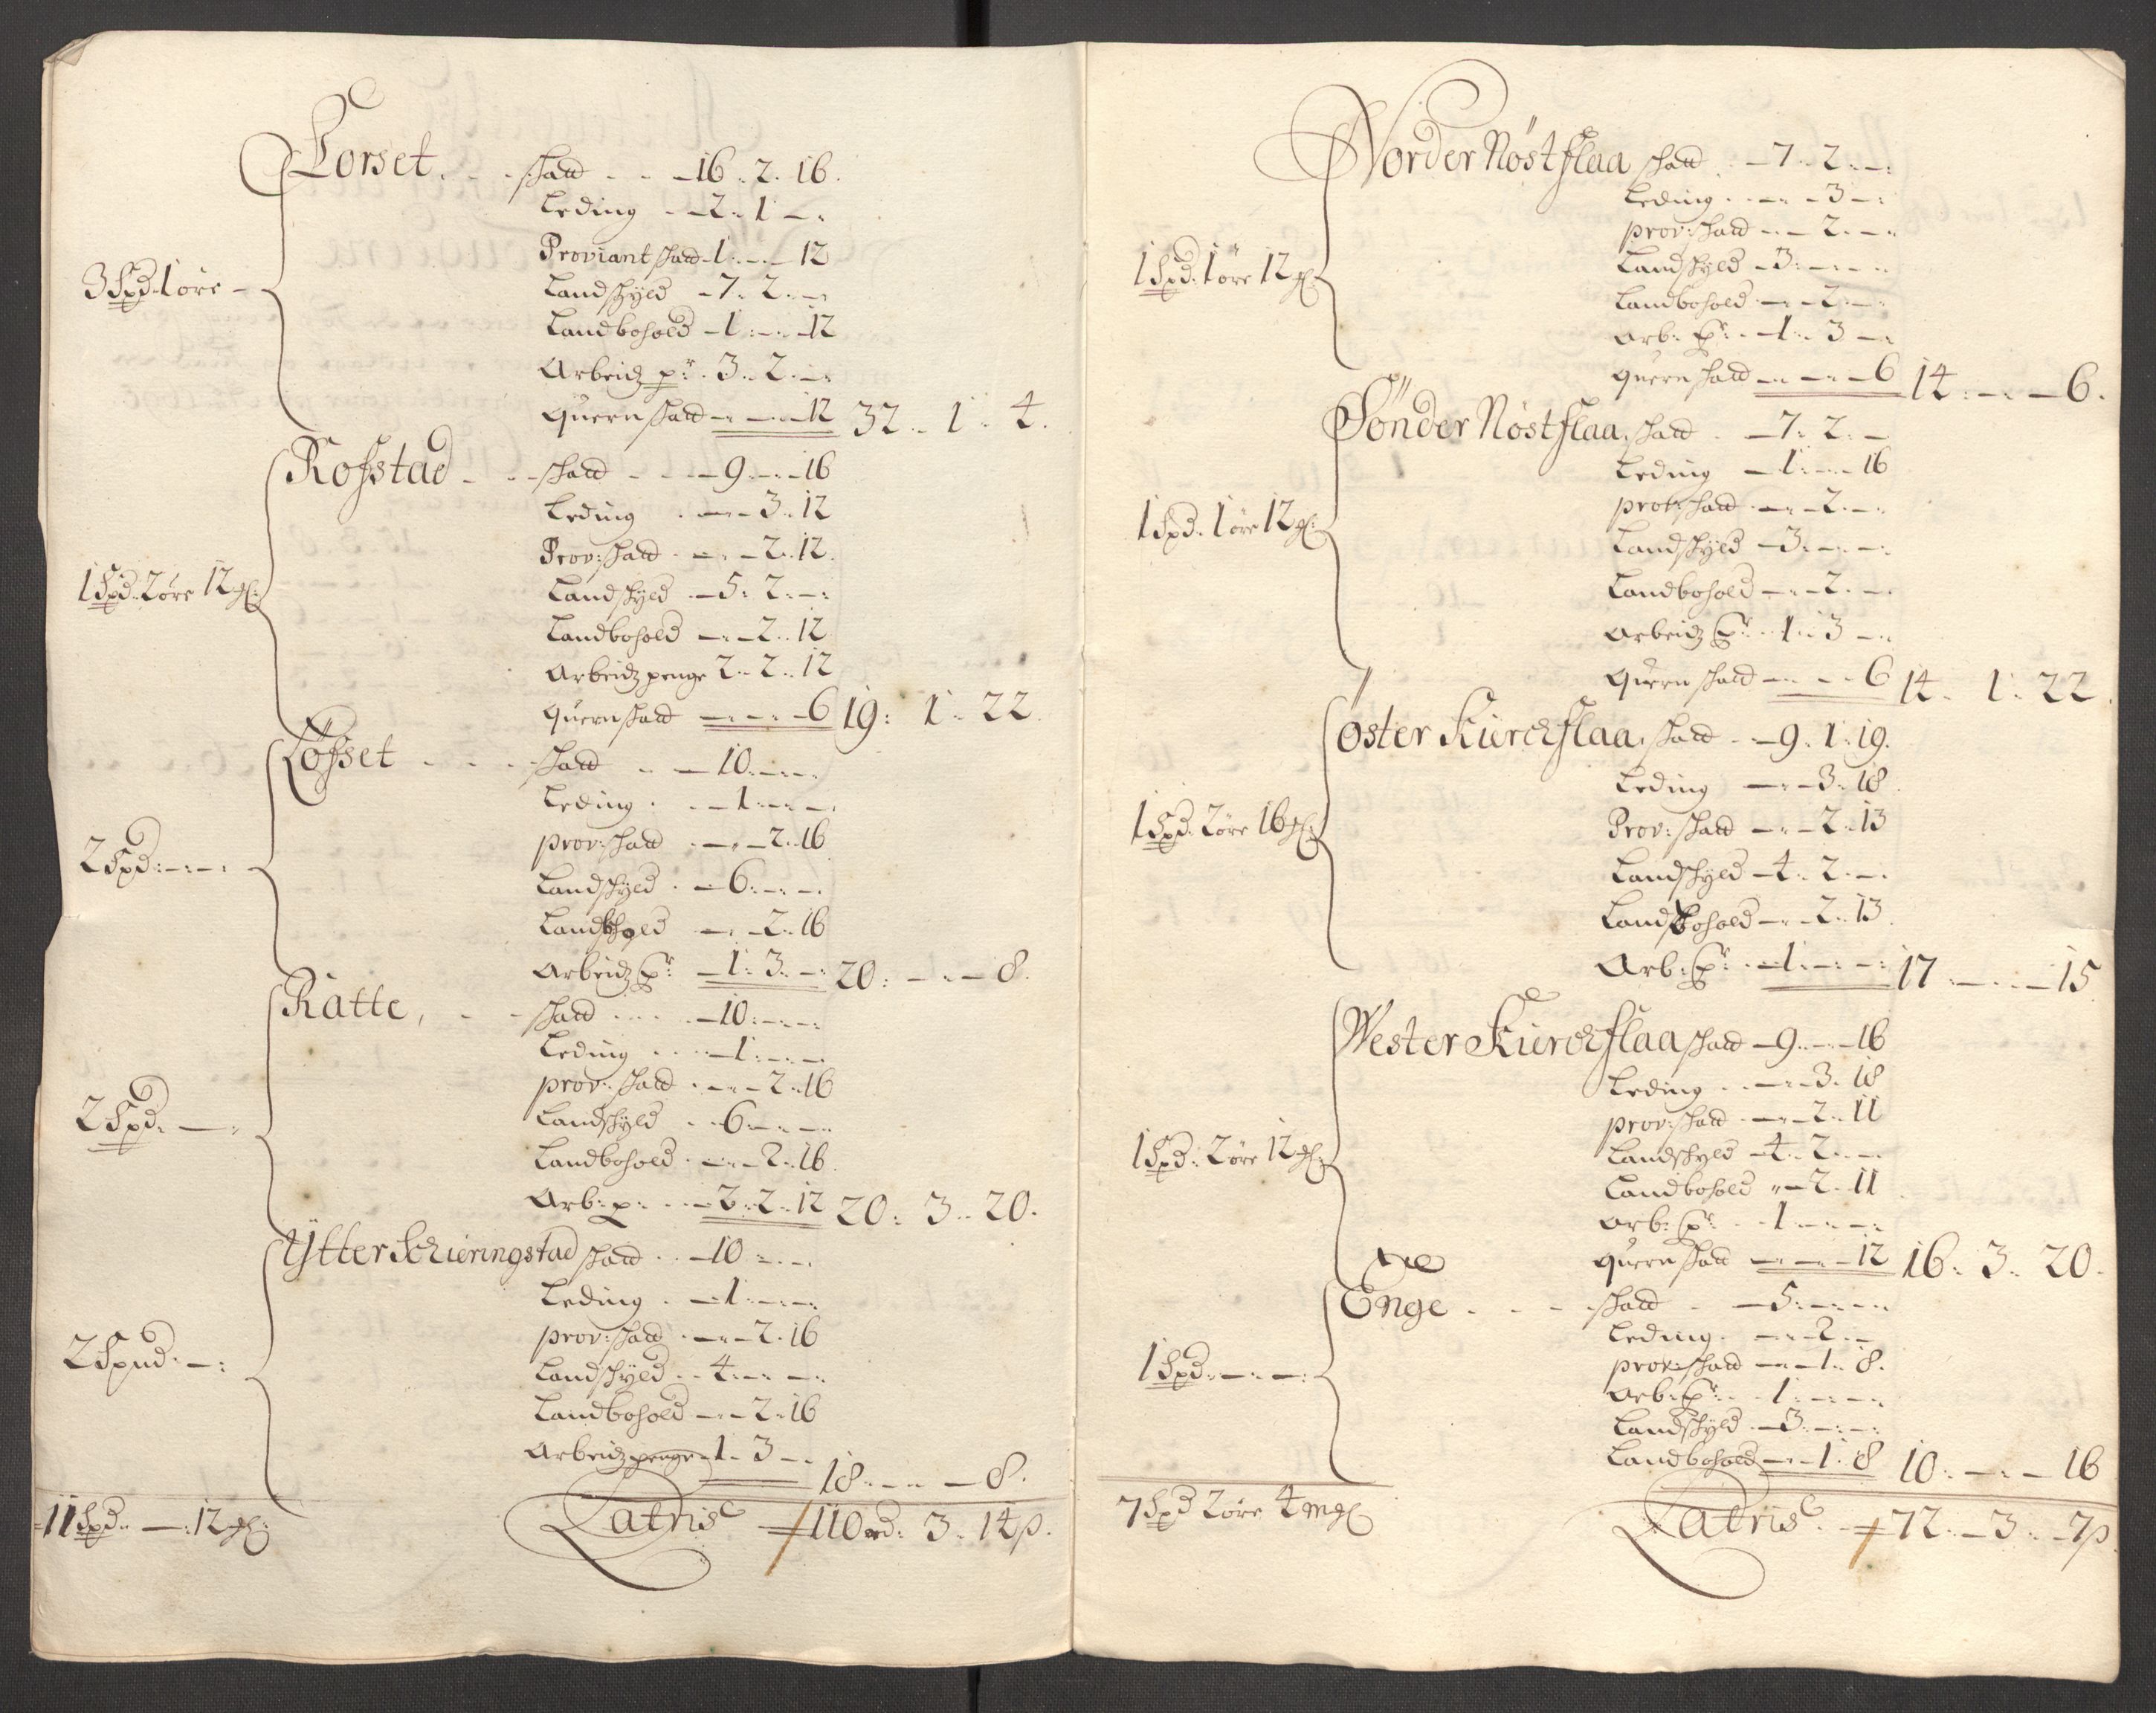 Torset. - - skatt - - - 16. 2. 16.
Leding - - 2. 1 - :
3 Spd 1 øre - Proviant skatt 1: - - 12
Landskyld - 7. 2. - -
Landbohold - 1: - : - 12
Arbeidz p:r . 3. 2. - :
Quern skatt - : - - 12 32. 1. 4.
Rosstad - - - skatt - - - 9. - : - 16
Leding . - - 3. 12
Prov: skatt . - : - 2. 12.
1 Spd. 2 øre 12 gl: Landskyld . - 5: 2. - :
Landbohold - : - 2. 12
Arbeidz penge 2. 2. 12
Quern skatt - : - : - 6 19: 1: 22.
Løsset - - - skatt - - 10: - - -
Leding . - - 1: - : -
prov: skatt . - - 2. 16
2 Spd: - : - : Landskyld . - 6: - : - .
Landbohold - : - 2. 16
Arbeidz p:r - 1: 3. - : 20: - : - 8.
Ratte, - - skatt . . . . - 10: - : -
Leding . . . - 1: - : -
prov: skatt . - : - 2. 16
2 Spd: - : Landskyld . . 6: - : -
Landbohold . - : - 2. 16.
Arb: p: . . - 2: 2. 12 20: 3. 20.
Ytter Schieringstad skatt . . - 10 : - . -
Leding . - 1: - : -
prov: skatt . - : - 2. 16
2 Spnd: - : Landskyld . . 4: - : - :
Landbohold - : - 2. 16
Arbeidz penge - 1. 3 - . 18: - : - 8.
11 Spd. - : 12 gl: Latris 110 rd: 3. 14 p.
Norder Nøstflaa skatt . - 7. 2. - :
Leding . . - : - 3 - :
prov: skatt - : - 2. - :
1 Spd. 1 øre 12 gl: Landskyld - 3: - : - :
Landbohold - : - 2. - :
Arb: p:r . - 1. 3 - :
Quern skatt - : - : - 6 14: - : - 6.
Sønder Nøstflaa, skatt . - 7: 2: -
Leding - 1: - : 16
prov: skatt . - : - 2. - :
1 Spd. 1 øre 12 gl: Landskyld - 3: - : - :
Landbohold - : - 2. - :
Arbeidz p:r . . 1. 3 - :
Quern skatt - : - - 6 14. 1. 22.
øster Kierckflaa, skatt - - 9. 1. 19.
Leding - : - 3. 18.
Prov: skatt - : - 2. 13
1 Spd. 2 øre 16 gl: Landskyld - 4. 2. - .
Landbohold - : - 2. 13.
Arb: p:r . - 1. - : - : 17 : - : - 15.
Wester Kierckflaa skatt - 9. - : - 16
Leding . . - : - 3. 18
prov: skatt . - : - 2. 11
1 Spd: 2 øre 12 gl: Landskyld - 4. 2. - :
Landbohold - : - 2. 11
Arb: p:r . . 1 - : - :
Quern skatt - : - : - 12 16: 3. 20.
Enge . - - - skatt - - 5: - : -
Leding . - : - 2. -
prov: skatt - : - 1. 8.
1 Spd: - : - : Arb: p:r . . 1: - : -
Landskyld . - 3: - : - :
Landbohold - : - 1. 8 10: - : - 16
7 Spd 2 øre 4 mgl Latris 72. - 3. - 7 p.